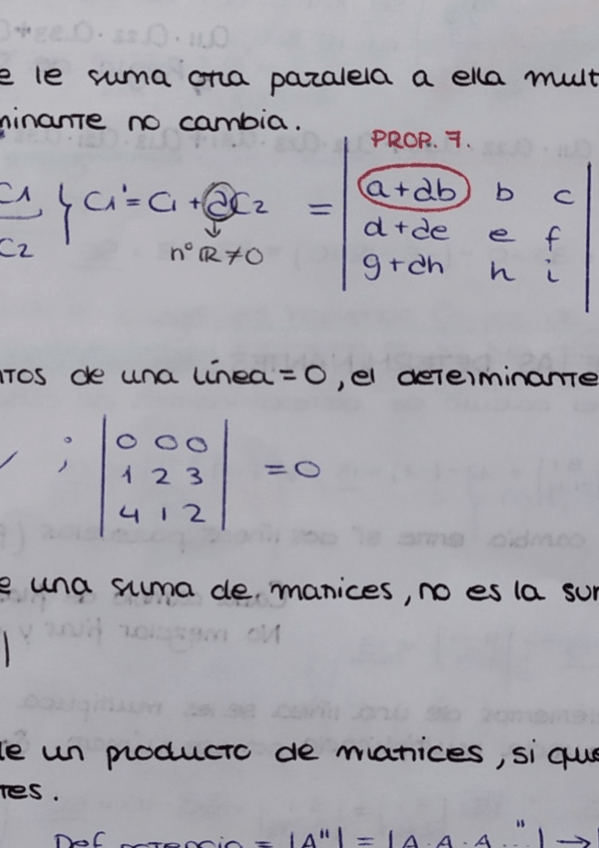 e le suma otra paralela a ella mult
minante no cambia.
PROP. 7.
C1 C1' = C1 + ∂C2 = | a+∂b b c |
C2 nº ℝ ≠ 0 | d+∂e e f |
| g+∂h h i |
ntos de una línea = 0, el determinante
; | 0 0 0 |
| 1 2 3 | = 0
| 4 1 2 |
e una suma de matices, no es la sum
|
de un producto de matices, si que
tes.
Def potencia = |Aⁿ| = |A·A·A...ⁿ| →